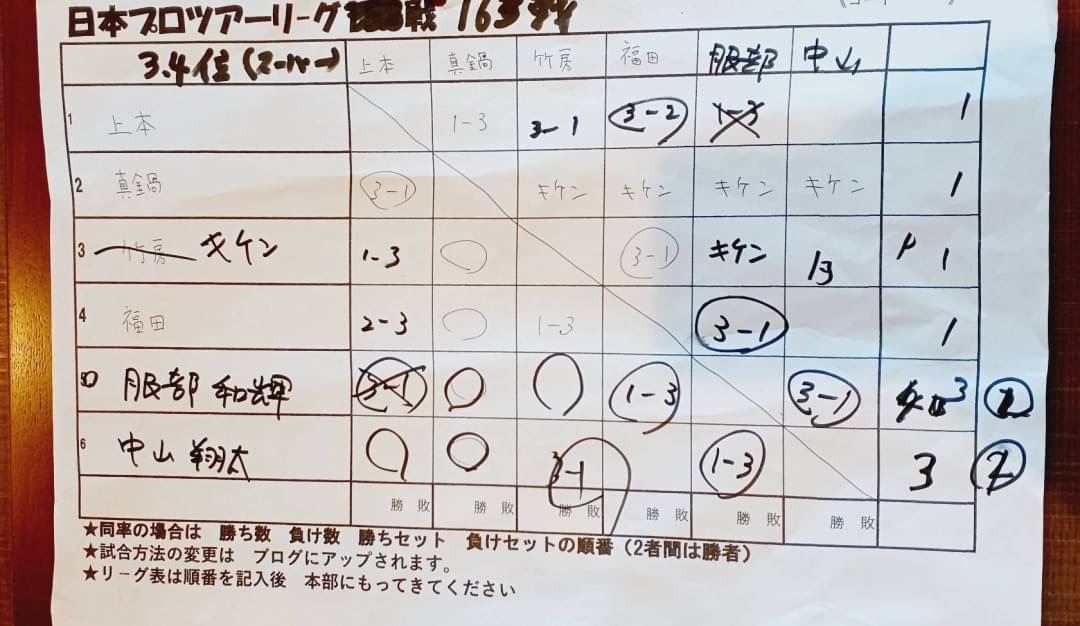 日本プロツアーリーグ 戦 163
3.4位(スーパー) 上本 真鍋 竹房 福田 服部 中山
1 上本 1-3 3-1 3-2 1-3 1
2 真鍋 3-1 キケン キケン キケン キケン 1
3 竹房 キケン 1-3 3-1 キケン 13 1
4 福田 2-3 1-3 3-1 1
服部 和輝 3-1 1-3 3-1 3
6 中山 翔太 3-1 1-3 3 2
勝 敗 勝 敗 勝 敗 勝 敗 勝 敗 勝 敗
★同率の場合は 勝ち数 負け数 勝ちセット 負けセットの順番(2者間は勝者)
★試合方法の変更は ブログにアップされます。
★リーグ表は順番を記入後 本部にもってきてください